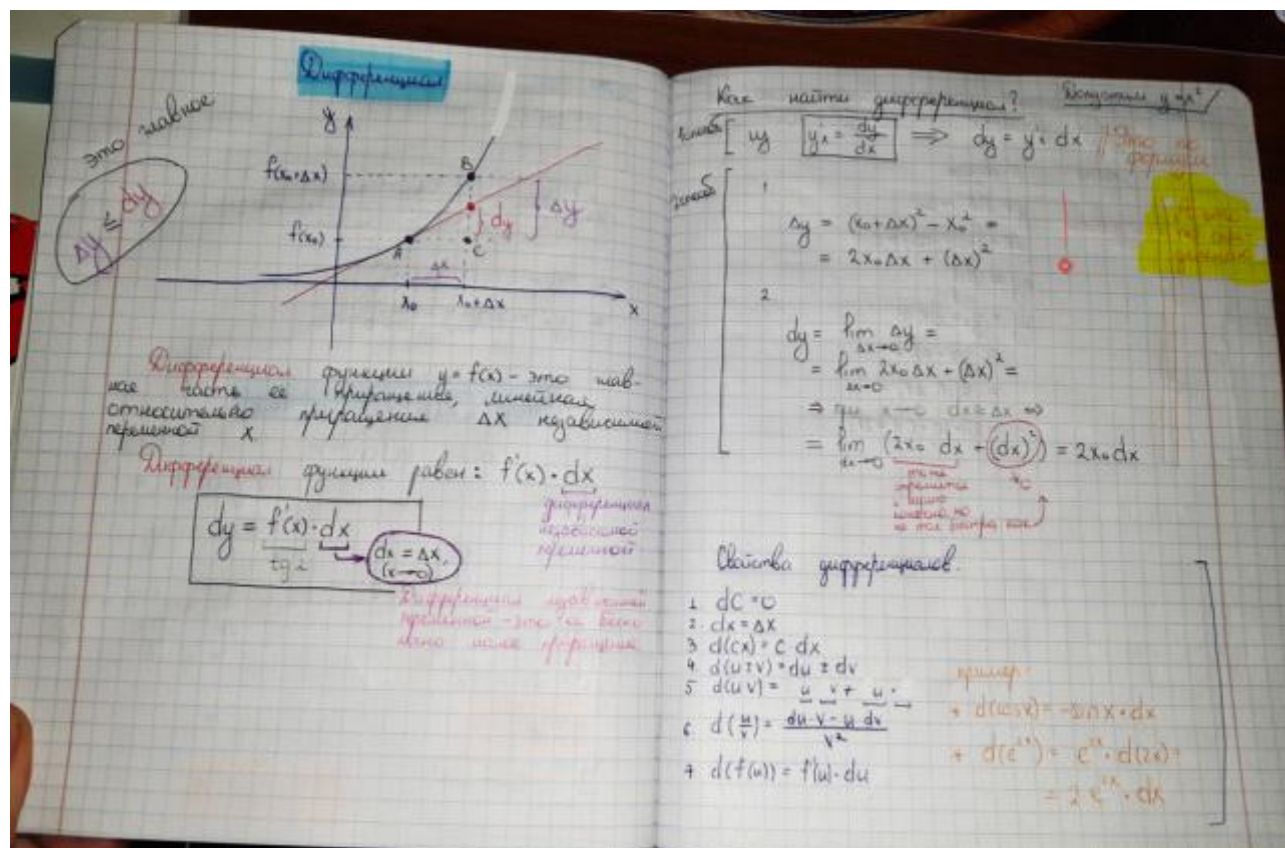 Дифференциал
это главное
Δy ≤ dy
y
f(x₀+Δx)
B
dy
Δy
f(x₀)
A
C
Δx
x₀
x₀+Δx
x
Дифференциал функции y = f(x) - это глав-
ная часть ее приращения, линейная
относительно приращения Δx независимой
переменной x
Дифференциал функции равен: f'(x)·dx
дифференциал
независимой
переменной
dy = f'(x)·dx
dx = Δx,
(x→0)
Дифференциал независимой
переменной - это её беско
нечно малое приращение
Как найти дифференциал? Допустим y=x²
1 способ
из y'ₓ = dy/dx ⟹ dy = y'ₓ dx // Это по
формуле
2 способ
1
Δy = (x₀+Δx)² - x₀² =
= 2x₀Δx + (Δx)²
2
dy = lim Δy =
Δx→0
= lim 2x₀Δx + (Δx)² =
⇒ при x→0 dx=Δx ⇒
= lim (2x₀ dx + (dx)²) = 2x₀dx
Свойства дифференциалов.
1 dC = 0
2. dx = Δx
3 d(cx) = c dx
4. d(u±v) = du ± dv
5 d(uv) = u v + u ·
6 d(u/v) = (du·v - u dv)/v²
7 d(f(u)) = f'(u)·du
пример:
+ d(cosx) = -sinx·dx
+ d(e²ˣ) = e²ˣ·d(2x) =
= 2e²ˣ·dx